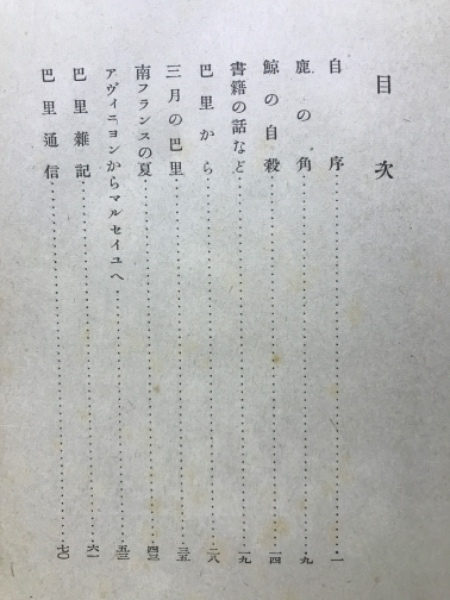 目次
自序……一
鹿の角……九
鯨の自殺……一四
書籍の話など……一九
巴里から……二八
三月の巴里……三五
南フランスの夏……四三
アヴィニヨンからマルセイユへ……五三
巴里雜記……六一
巴里通信……七〇